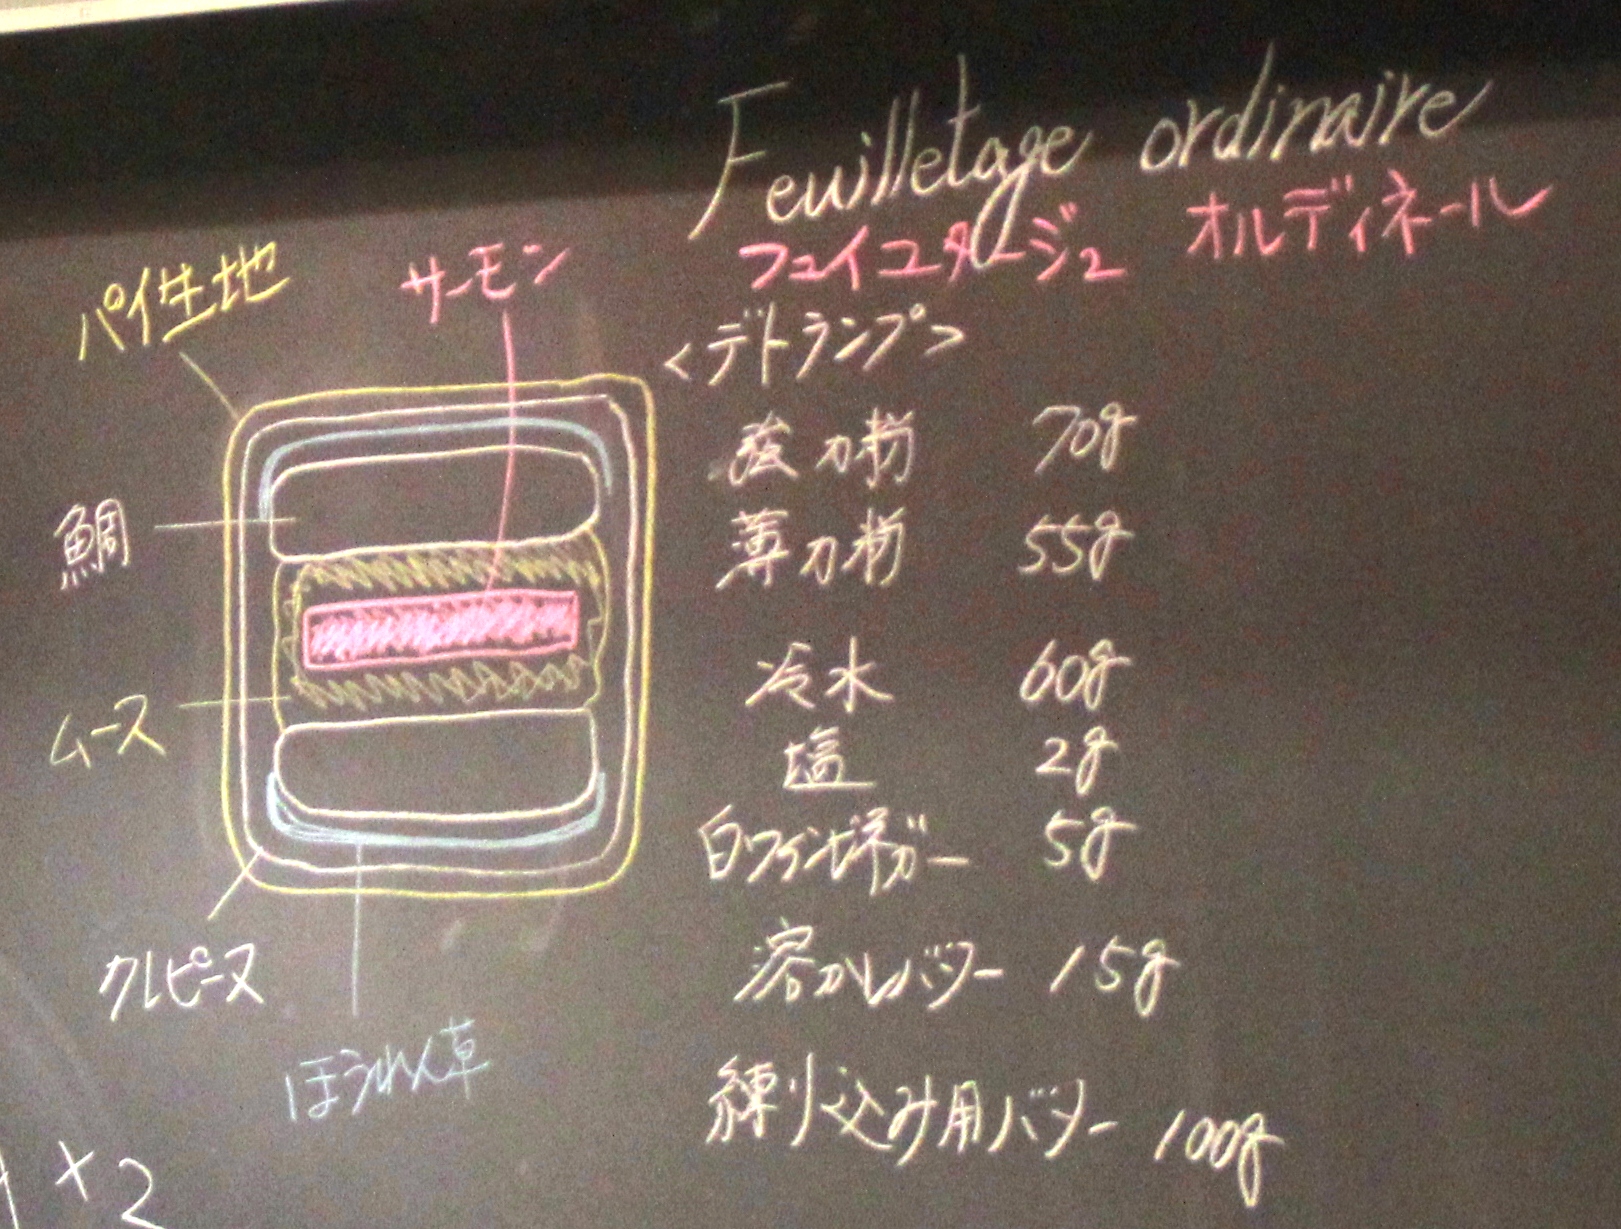 Feuilletage ordinaire
フュイユタージュ オルディネール
パイ生地
サーモン
鯛
ムース
クレピーヌ
ほうれん草
<デトランプ>
強力粉 70g
薄力粉 55g
冷水 60g
塩 2g
白ワインビネガー 5g
溶かしバター 15g
練り込み用バター 100g
+2